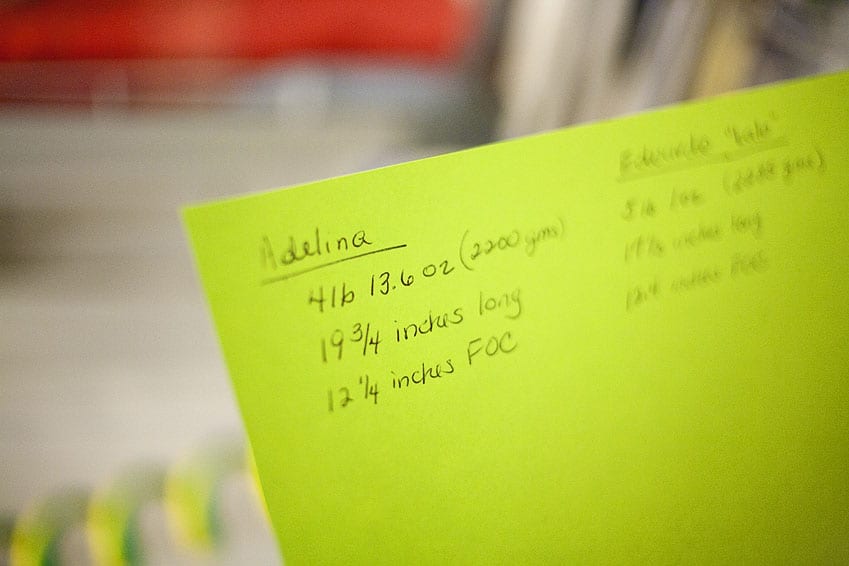 Adelina
4lb 13.6 oz (2200 gms)
19 3/4 inches long
12 1/4 inches FOC
Eduardo "lalo"
5lb
inches long
inches FOC